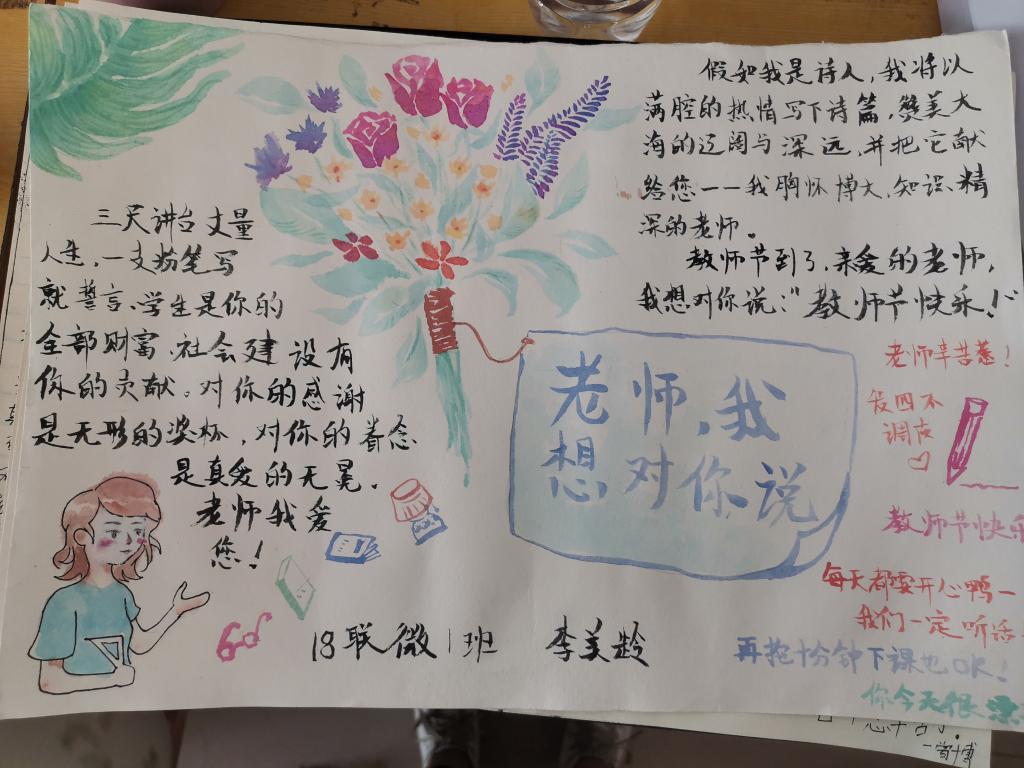 三尺讲台丈量
人生,一支粉笔写
就誓言、学生是你的
全部财富、社会建设有
你的贡献。对你的感谢
是无形的奖杯,对你的眷恋
是真爱的无冕。
老师我爱
您!
假如我是诗人,我将以
满腔的热情写下诗篇,赞美大
海的辽阔与深远,并把它献
给您——我胸怀博大,知识精
深的老师。
教师节到了,亲爱的老师,
我想对你说:"教师节快乐!"
老师,我
想对你说
老师辛苦惹!
调皮
教师节快乐
每天都要开心鸭—
我们一定听话
再拖十分钟下课也OK!
你今天很
18联微1班 李美龄